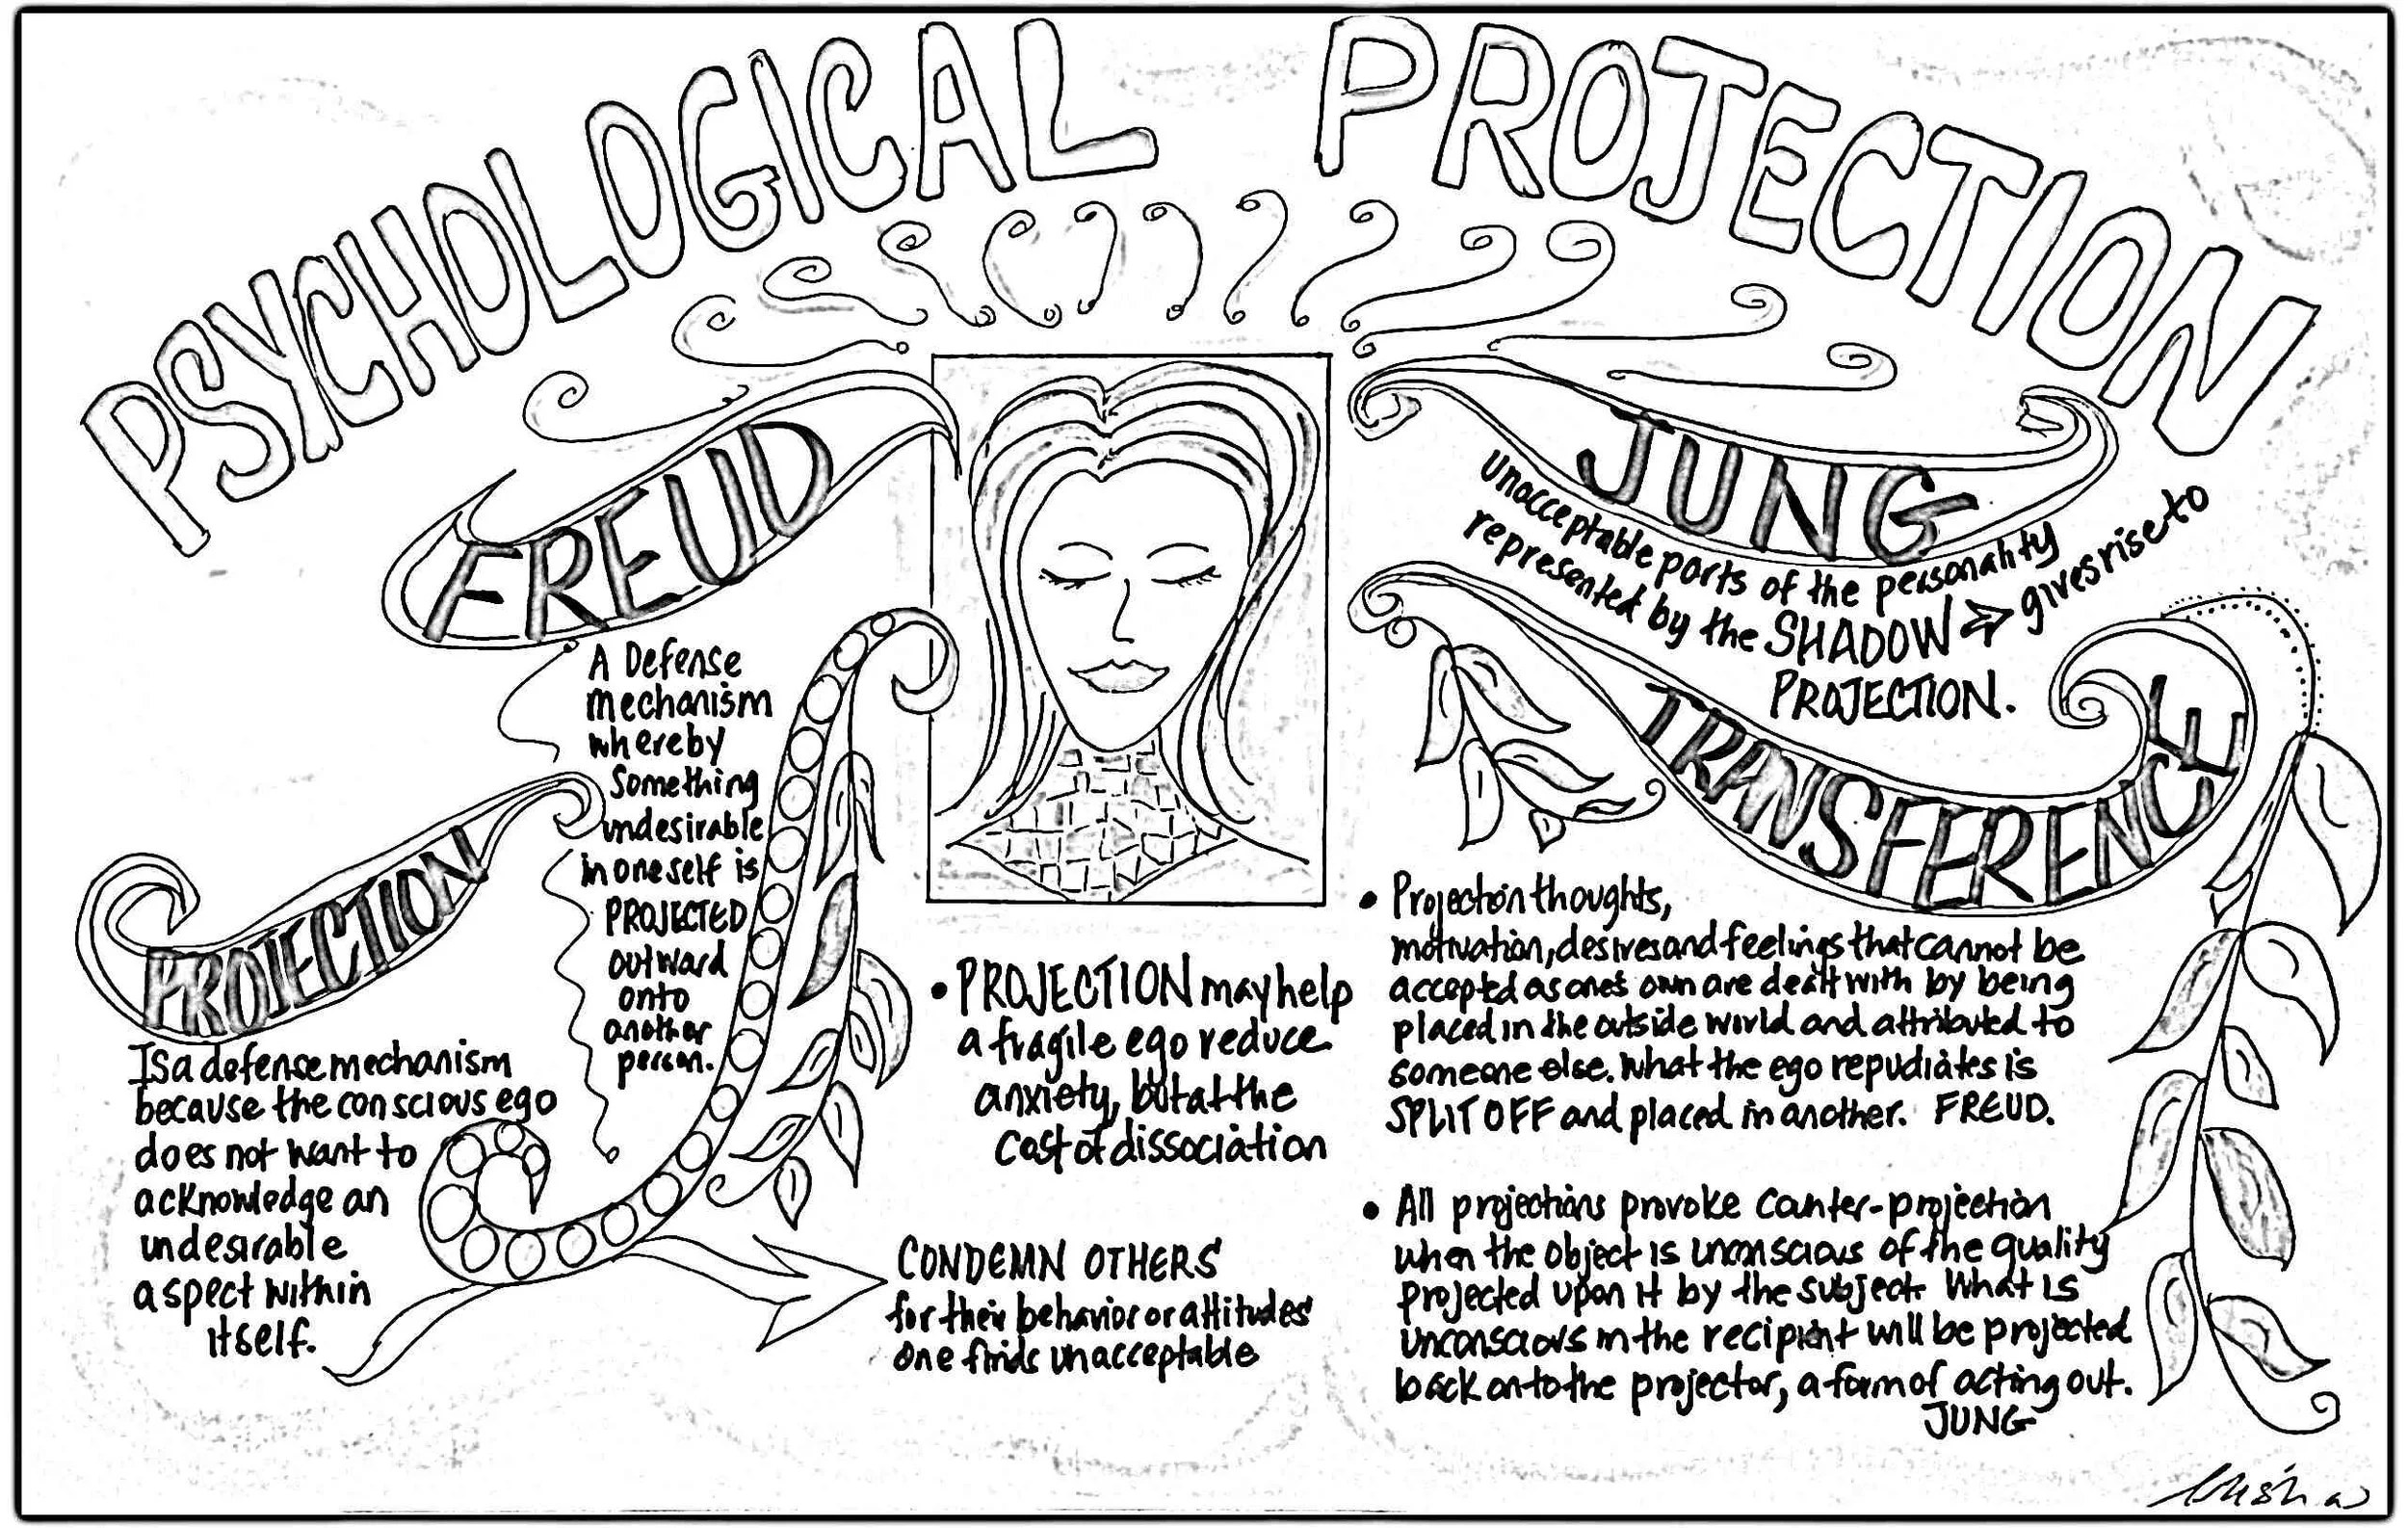 PSYCHOLOGICAL PROJECTION
FREUD
A Defense
mechanism
whereby
something
undesirable
in oneself is
PROJECTED
outward
onto
another
person.
PROJECTION
Is a defense mechanism
because the conscious ego
does not want to
acknowledge an
undesirable
aspect within
itself.
• PROJECTION may help
a fragile ego reduce
anxiety, but at the
cost of dissociation
CONDEMN OTHERS
for their behavior or attitudes
one finds unacceptable
JUNG
unacceptable parts of the personality
represented by the SHADOW ⇒ gives rise to
PROJECTION.
TRANSFERENCE
• Projection thoughts,
motivation, desires and feelings that cannot be
accepted as one's own are dealt with by being
placed in the outside world and attributed to
someone else. What the ego repudiates is
SPLIT OFF and placed in another. FREUD.
• All projections provoke counter-projection
when the object is unconscious of the quality
projected upon it by the subject. What is
unconscious in the recipient will be projected
back onto the projector, a form of acting out.
JUNG